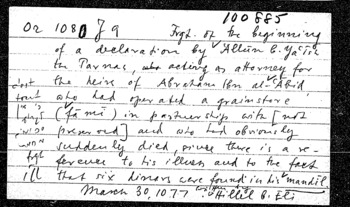 100885
Or 1080 J 9 Frgt. of the beginning
of a declaration by ʿAllūn b. Yaʿīsh
the Parnas, acting as attorney for
the heirs of Abraham Ibn al-ʿĀbid,
who had operated a grainstore
(fāmī) in partnership with [not
preserved] and who had obviously
suddenly died, since there is a re-
ference to his illness and to the fact
that six dinars were found in his mandīl.
March 30, 1077 Hillel b. Eli